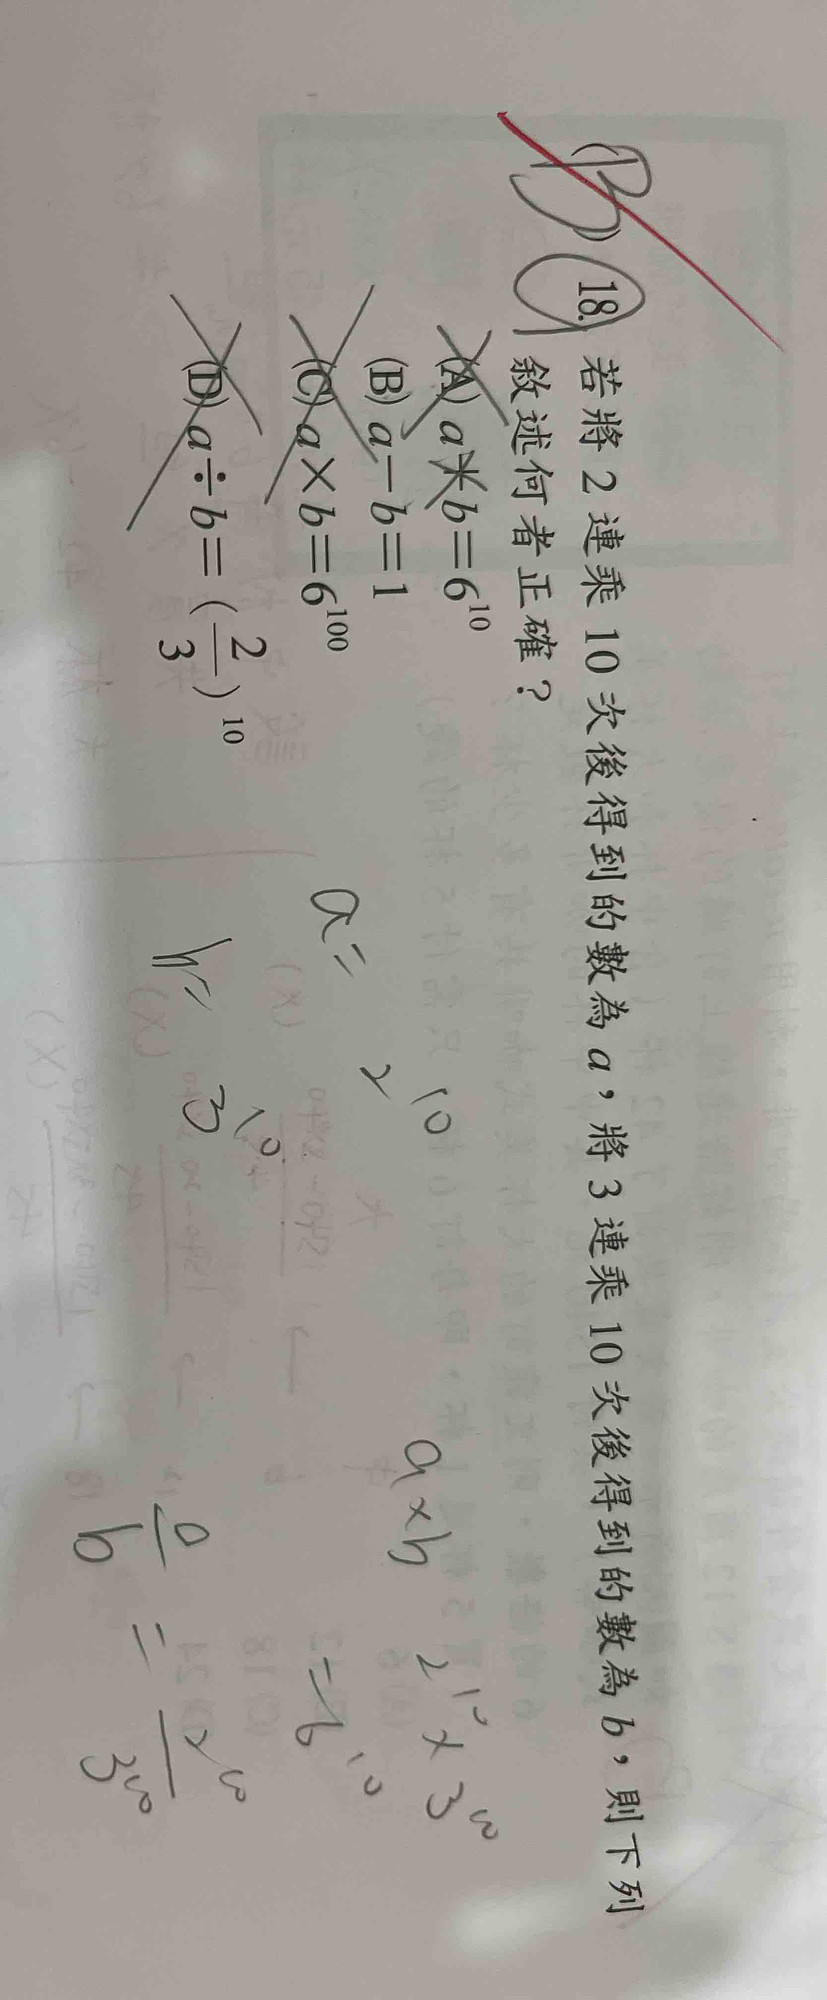 (B) 18. 若將 2 連乘 10 次後得到的數為 a，將 3 連乘 10 次後得到的數為 b，則下列
敘述何者正確？
(A) a+b=6^10
(B) a-b=1
(C) a×b=6^100
(D) a÷b=(2/3)^10
a= 2^10
b= 3^10
a×b 2^10 × 3^10
= 6^10
a/b = 2^10/3^10